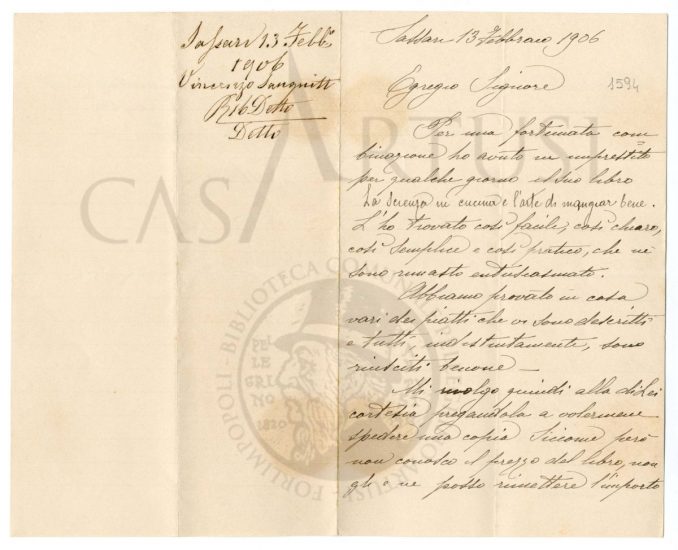 Sassari 13 Febb°
1906
Vincenzo Sanguitt
Risb Detto
Detto
Sassari 13 Febbraio 1906
1594
Egregio Signore
Per una fortunata com
binazione ho avuto in imprestito
per qualche giorno il suo libro
La scienza in cucina e l'arte di mangiar bene.
L'ho trovato così facile, così chiaro,
così semplice e così pratico, che ne
sono rimasto entusiasmato.
Abbiamo provato in casa
vari dei piatti che vi sono descritti
e tutti, indistintamente, sono
riusciti benone –
Mi rivolgo quindi alla di Lei
cortesia pregandola a volermene
spedire una copia. Siccome però
non conosco il prezzo del libro, non
gliene posso rimettere l'importo
CASA ARTUSI
FORLIMPOPOLI - BIBLIOTECA COMUNALE
ARTUSI
PELLE
GRINO
1820